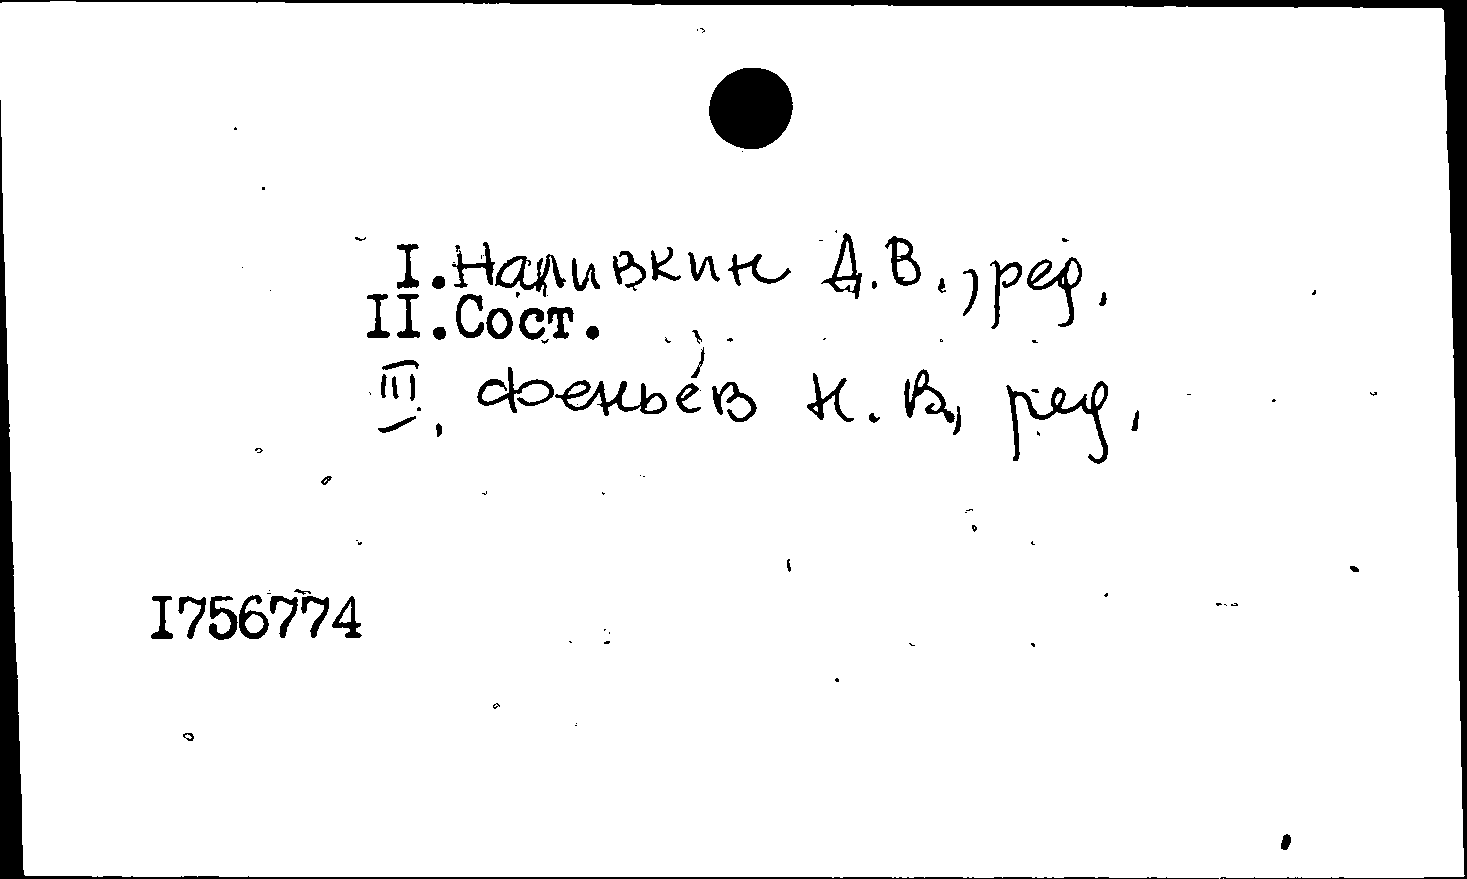 I.Наливкин Д.В., ред.
II.Сост.
III. Феньёв Н.В., ред.
I756774